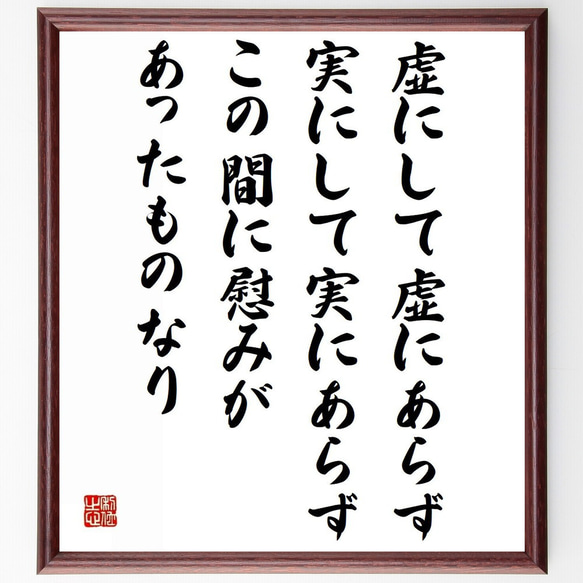 虚にして虚にあらず
実にして実にあらず
この間に慰みが
あったものなり